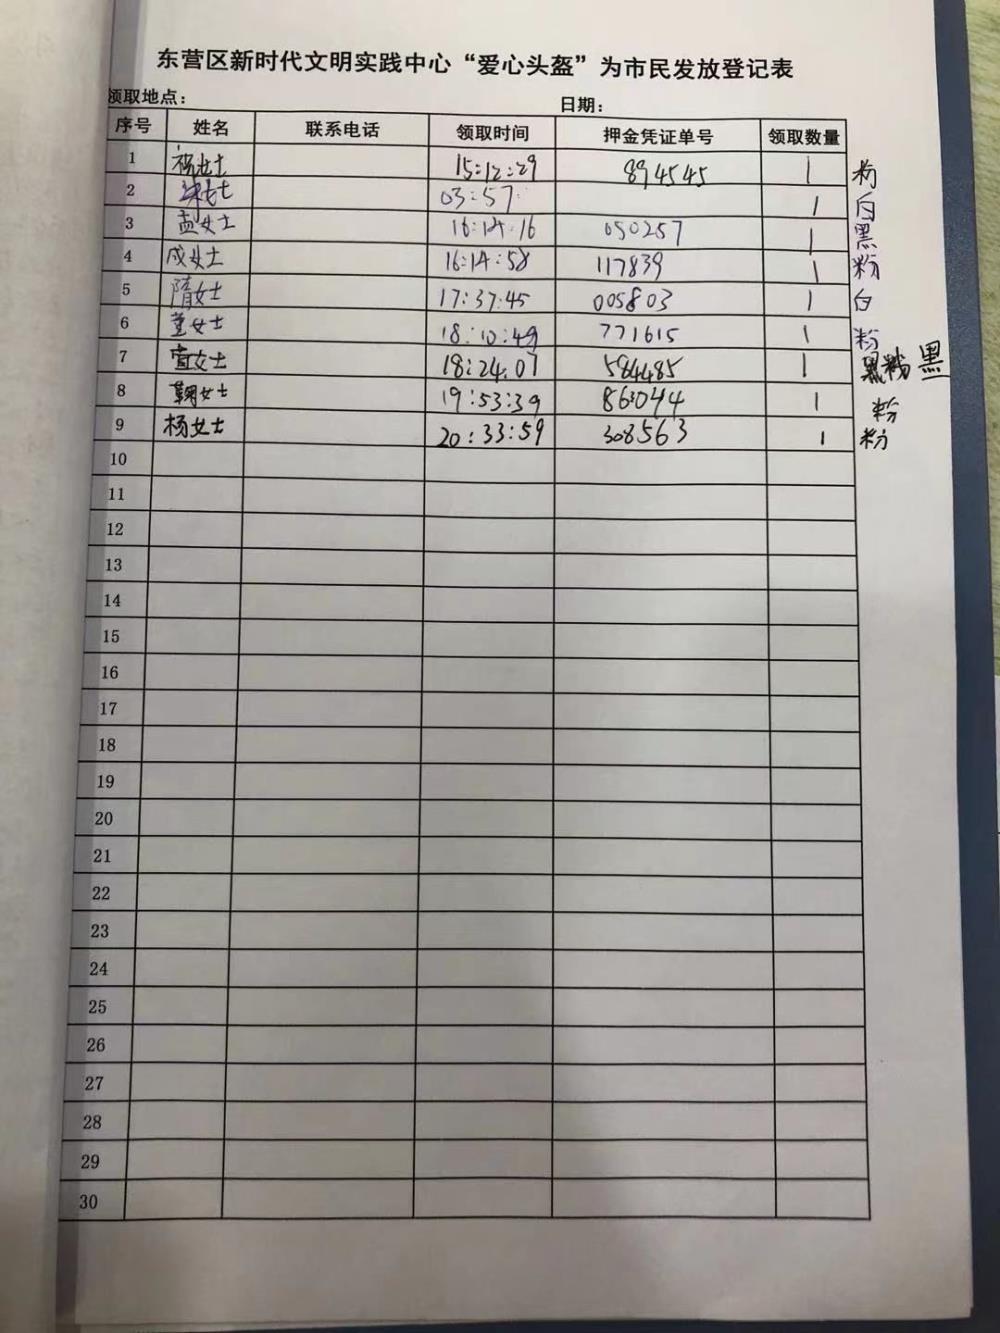 东营区新时代文明实践中心“爱心头盔”为市民发放登记表
领取地点： 日期：
序号 姓名 联系电话 领取时间 押金凭证单号 领取数量
1 女士 15:12:29 894545 1 粉
2 女士 03:57 1 白
3 孟女士 16:14:16 050257 1 黑
4 成女士 16:14:58 117839 1 粉
5 隋女士 17:37:45 005803 1 白
6 董女士 18:10:49 771615 1 粉
7 女士 18:24.07 584485 1 黑
8 鞠女士 19:53:39 863044 1 粉
9 杨女士 20:33:59 308563 1 粉
10
11
12
13
14
15
16
17
18
19
20
21
22
23
24
25
26
27
28
29
30